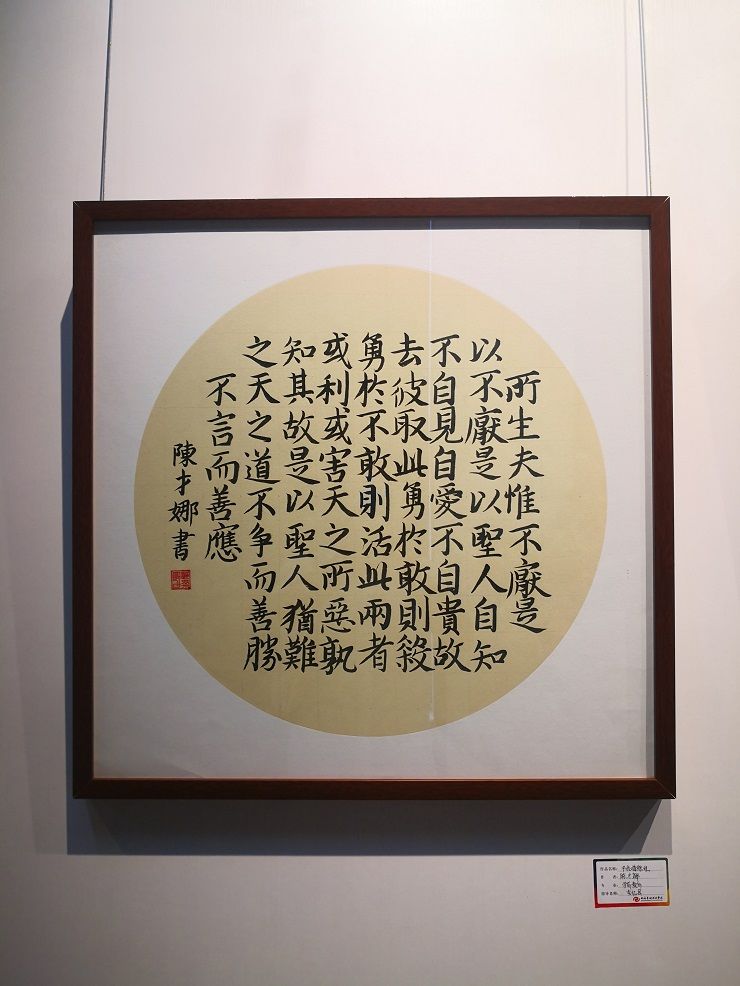 所生夫惟不厭是
以不厭是以聖人自知
不自見自愛不自貴故
去彼取此勇於敢則殺
勇於不敢則活此兩者
或利或害天之所惡孰
知其故是以聖人猶難
之天之道不争而善勝
不言而善應
陳才娜書
作品名称:
作 者: 陈才娜
专 业:
指导老师: